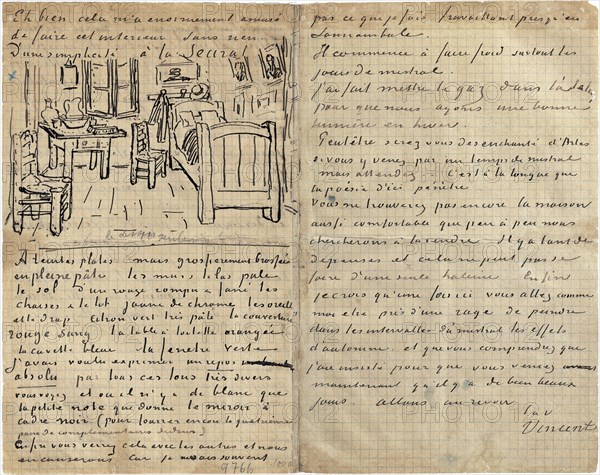 Eh bien cela m'a enormement amusé
de faire cet interieur sans rien
D'une simplicité à la Seurat
A teintes plates mais grossierement brossées
en pleine pâte les murs lilas pâle
le sol d'un rouge rompu & fané les
chaises & le lit jaune de chrome les oreillers
et le drap citron vert très pâle la couverture
rouge sang la table à toilette orangée
la cuvette bleue la fenetre verte
J'avais voulu exprimer un repos
absolu par tous ces tons très divers
vous voyez et où il n'y a de blanc que
la petite note que donne le miroir à
cadre noir (pour fourrer encore la quatrième
paire de complementaires dedans)
Enfin vous verrez cela avec les autres et nous
en causerons car je ne sais souvent
9766
pas ce que je fais travaillant presqu'en
somnambule.
Il commence à faire froid surtout les
jours de mistral.
J'ai fait mettre le gaz dans l'atelier
pour que nous ayons une bonne
lumière en hiver.
Peutêtre serez vous desenchanté d'Arles
si vous y venez par un temps de mistral
mais attendez ... C'est à la longue que
la poésie d'ici pénètre
Vous ne trouverez pas encore la maison
aussi comfortable que peu à peu nous
chercherons à la rendre Il y a tant de
depenses et cela ne peut pas se
faire d'une seule haleine Enfin
je crois qu'une fois ici vous allez comme
moi etre pris d'une rage de peindre
dans les intervalles du mistral les effets
d'automne et que vous comprendrez que
j'ai insisté pour que vous venez
maintenant qu'il y a de bien beaux
jours allons au revoir
t.av.
Vincent